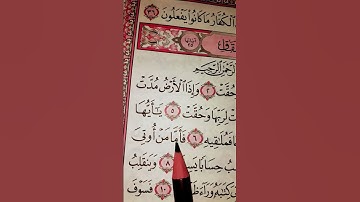 ٱلْكُفَّارُ مَا كَانُوا۟ يَفْعَلُونَ ٣٦
ٱلرَّحْمَٰنِ ٱلرَّحِيمِ
حُقَّتْ ٢ وَإِذَا ٱلْأَرْضُ مُدَّتْ
لِرَبِّهَا وَحُقَّتْ ٥ يَٰٓأَيُّهَا
فَمُلَٰقِيهِ ٦ فَأَمَّا مَنْ أُوتِىَ
حِسَابًا ٨ وَيَنقَلِبُ
كِتَٰبَهُۥ وَرَآءَ ١٠ فَسَوْفَ